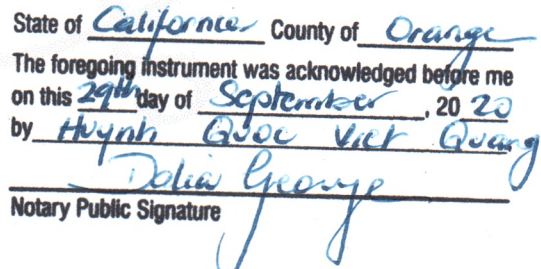 State of California County of Orange
The foregoing instrument was acknowledged before me
on this 29th day of September, 20 20
by Huynh Quoc Viet Quang
Dalia George
Notary Public Signature